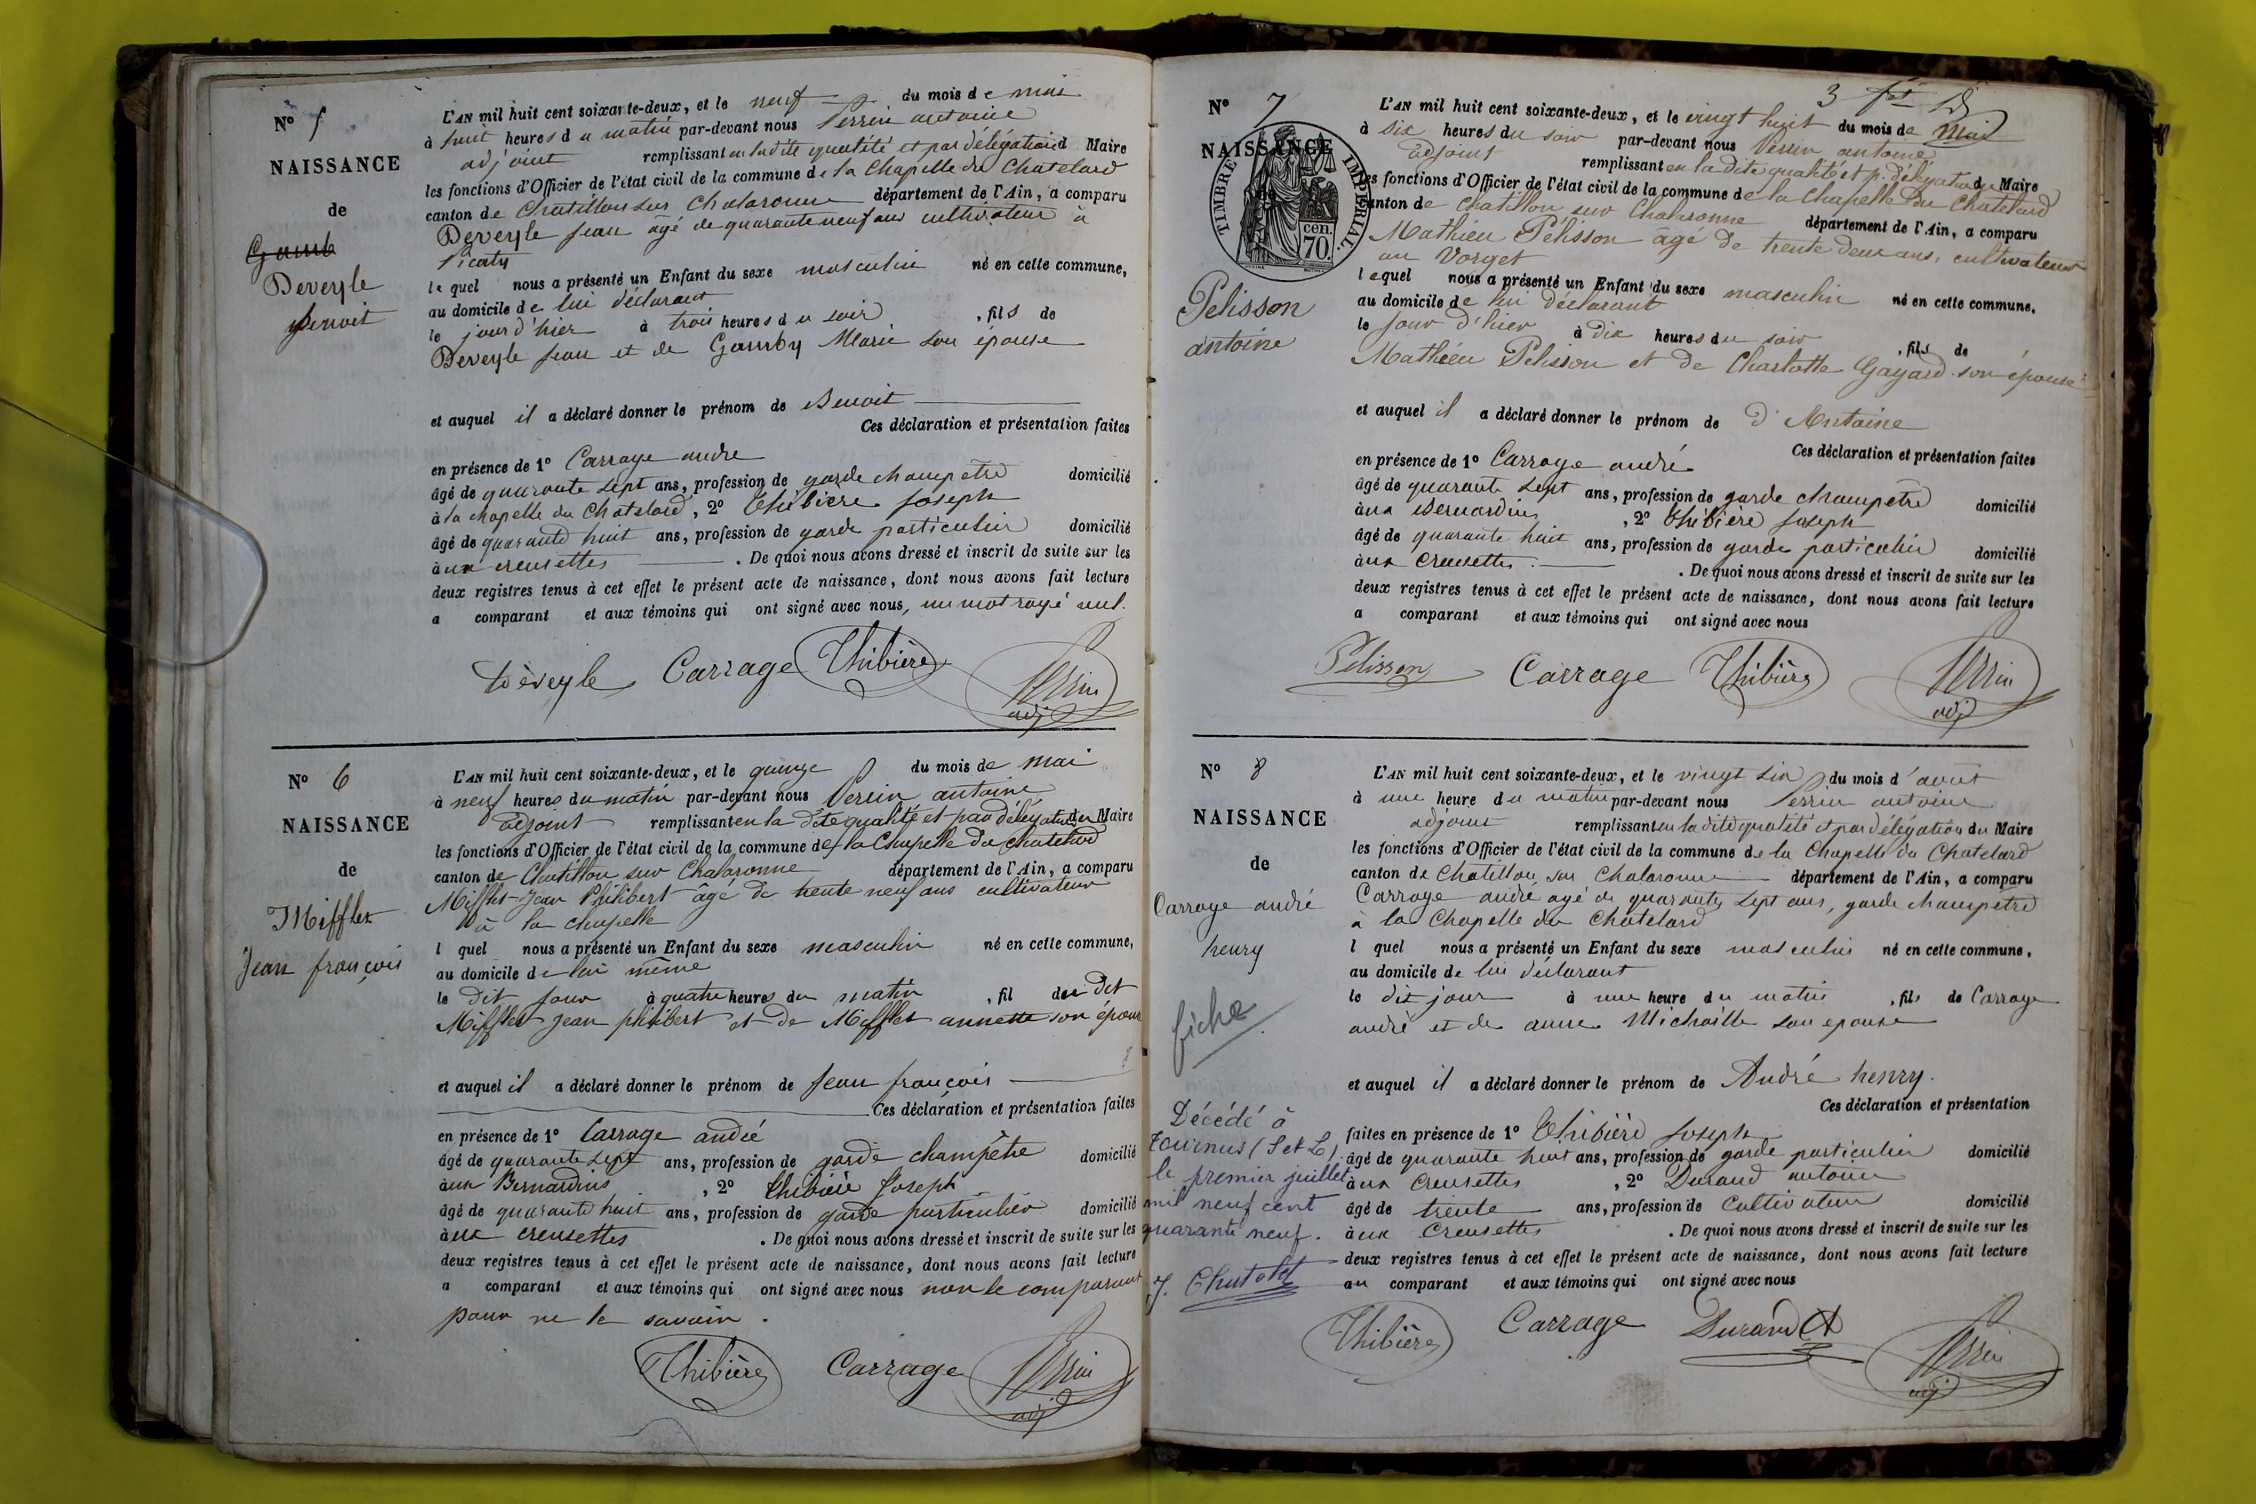 N° 5
NAISSANCE
de
Gamb
Deveyle
Benoit
L'AN mil huit cent soixante-deux, et le neuf du mois de mai
à huit heures du matin par-devant nous Perrin antoine
adjoint remplissant en ladite qualité et par délégation d Maire
les fonctions d'Officier de l'état civil de la commune de la Chapelle du Chatelard
canton de Chatillon sur Chalaronne département de l'Ain, a comparu
Deveyle Jean âgé de quarante neuf ans cultivateur à
Picaty
lequel nous a présenté un Enfant du sexe masculin né en cette commune,
au domicile de lui déclarant
le jour d'hier à trois heures du soir , fils de
Deveyle Jean et de Gamby Marie son épouse
et auquel il a déclaré donner le prénom de Benoit
Ces déclaration et présentation faites
en présence de 1° Carrage andre
âgé de quarante sept ans, profession de garde champêtre domicilié
à la chapelle du Chatelard, 2° Thibière Joseph
âgé de quarante huit ans, profession de garde particulier domicilié
aux creusettes . De quoi nous avons dressé et inscrit de suite sur les
deux registres tenus à cet effet le présent acte de naissance, dont nous avons fait lecture
a comparant et aux témoins qui ont signé avec nous, un mot rayé nul.
Dèveyle Carrage Thibière Perrin
adj
N° 6
NAISSANCE
de
Mifflet
Jean françois
L'AN mil huit cent soixante-deux, et le quinze du mois de mai
à neuf heures du matin par-devant nous Perrin antoine
adjoint remplissant en la dite qualité et par délégation du Maire
les fonctions d'Officier de l'état civil de la commune de la Chapelle du Chatelard
canton de Chatillon sur Chalaronne département de l'Ain, a comparu
Mifflet Jean Philibert âgé de trente neuf ans cultivateur
à la chapelle
l quel nous a présenté un Enfant du sexe masculin né en cette commune,
au domicile de lui même
le dit jour à quatre heures du matin , fil du dit
Mifflet Jean philibert et de Mifflet annette son épouse
et auquel il a déclaré donner le prénom de Jean françois
Ces déclaration et présentation faites
en présence de 1° Carrage andré
âgé de quarante sept ans, profession de garde champêtre domicilié
aux Bernardins , 2° Thibière Joseph
âgé de quarante huit ans, profession de garde particulier domicilié
aux creusettes . De quoi nous avons dressé et inscrit de suite sur les
deux registres tenus à cet effet le présent acte de naissance, dont nous avons fait lecture
a comparant et aux témoins qui ont signé avec nous non le comparant
pour ne le savoir .
Thibière Carrage Perrin
adj
3
N° 7
NAISSANCE
de
TIMBRE IMPÉRIAL.
70 cen.
Pelisson
antoine
L'AN mil huit cent soixante-deux, et le vingt huit du mois de Mai
à six heures du soir par-devant nous Perrin antoine
adjoint remplissant en la dite qualité et p. délégation d Maire
les fonctions d'Officier de l'état civil de la commune de la Chapelle du Chatelard
canton de Chatillon sur Chalaronne département de l'Ain, a comparu
Mathieu Pélisson âgé de trente deux ans, cultivateur
au Vorget
lequel nous a présenté un Enfant du sexe masculin né en cette commune,
au domicile de lui déclarant
le jour d'hier à dix heures du soir , fils de
Mathieu Pelisson et de Charlotte Gayard son épouse
et auquel il a déclaré donner le prénom de d'Antoine
Ces déclaration et présentation faites
en présence de 1° Carrage andré
âgé de quarante sept ans, profession de garde champêtre domicilié
aux Bernardins , 2° Thibière Joseph
âgé de quarante huit ans, profession de garde particulier domicilié
aux Creusettes . De quoi nous avons dressé et inscrit de suite sur les
deux registres tenus à cet effet le présent acte de naissance, dont nous avons fait lecture
a comparant et aux témoins qui ont signé avec nous
Pelisson Carrage Thibière Perrin
adj
N° 8
NAISSANCE
de
Carrage andré
henry
fiche
Décédé à
Tournus (S et L)
le premier juillet
mil neuf cent
quarante neuf.
L'AN mil huit cent soixante-deux, et le vingt six du mois d'août
à une heure du matin par-devant nous Perrin antoine
adjoint remplissant en la dite qualité et par délégation du Maire
les fonctions d'Officier de l'état civil de la commune de la Chapelle du Chatelard
canton de Chatillon sur Chalaronne département de l'Ain, a comparu
Carrage andré agé de quarante sept ans, garde champêtre
à la Chapelle du Chatelard
l quel nous a présenté un Enfant du sexe masculin né en cette commune,
au domicile de lui déclarant
le dit jour à une heure du matin , fils de Carrage
andré et de anne Michaille son epouse
et auquel il a déclaré donner le prénom de André henry.
Ces déclaration et présentation
faites en présence de 1° Thibière Joseph
âgé de quarante huit ans, profession de garde particulier domicilié
aux Creusettes , 2° Durand antoine
âgé de trente ans, profession de Cultivateur domicilié
aux Creusettes . De quoi nous avons dressé et inscrit de suite sur les
deux registres tenus à cet effet le présent acte de naissance, dont nous avons fait lecture
au comparant et aux témoins qui ont signé avec nous
Thibière Carrage Durand A Perrin
adj